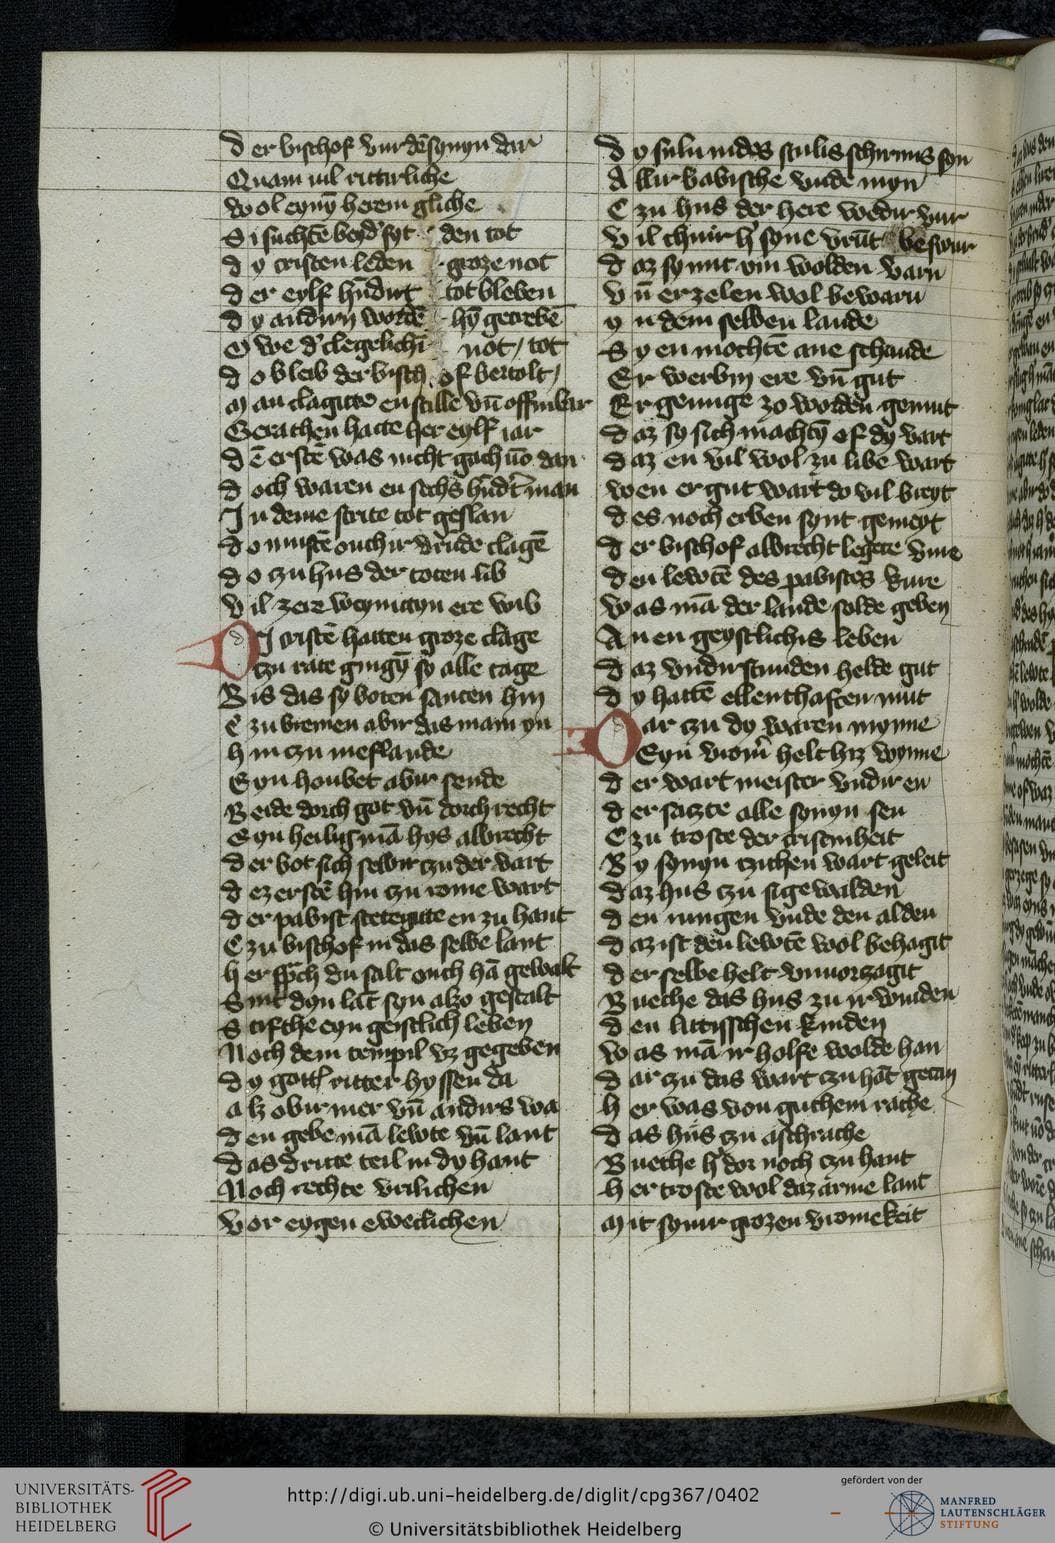 der bischof vnr dē synyn dar
Quam vil rittirliche
wol eynȳ herem gliche
Si suchtē beyd' syt den tot
dy cristen leden groze not
der eylf hūdirt tot bleben
dy andirn wordē hȳ getrebē
Owe d' clegelichī not / tot
do bleib der bisch of bertolt /
Man clagitte en stille vn̄ offinbar
Gerathen hatte her eylf iar
dē erstē was nicht gach vō dan
doch waren en sechs hūdt man
In deme strite tot geslan
do mustē ouch ir vrūde clagē
do czu hus der toten lib
vil zere weynityn ere wib
DI cristē hatten groze clage
czu rate gingȳ sy alle tage
Bis das sy boten santen hin
Czu bremen abir das mam yn
hin czu nieflande
Eyn houbet abir sende
Beide dorch got vn̄ dorch recht
Eyn heilig mā hys albrecht
der bot sich selbir czu der vart
dez erstē hin czu rome wart
der pabist stetegitte en zu hant
Czu bischof in das selbe lant
her sp̄ch du salt ouch hā gewalt
Sint dyn lāt syn alzo gestalt
Stifthe eyn geistlich leben
Noch dem tempil vz gegeben
dy gott' ritter hyssen da
alz obir mer vn̄ andirs wa
den gebe mā lewte vn̄ lant
das dritte teil in dy hant
Noch rechte vrilichen
vor eygen eweclichen
dy suln nides stulis schirmis syn
Allir babische vnde myn
Czu hus der here wedir vuir
vil thuir h' syne vrūt beswur
daz sy mit vm wolden varn
vn̄ er zelen wol bewarn
yn dem selben lande
Sy en mochtē ane schande
Er werbin ere vn̄ gut
Er genuge zo worden gemut
daz sy sich machtȳ of dy vart
daz en vil wol zu libe wart
wen er gut wart do vil breyt
des noch erben synt gemeyt
der bischof albrecht legete vure
den lewtē des pabistes kure
was mā der lande solde geben
An en geystlichis leben
daz vndirstunden helde gut
dy hattē ellenthaften mut
Dar czu dy waren mynne
Eyn vrom' helt hiz wynne
der wart meister vndir en
der saczte alle synyn sen
Czu troste der cristinheit
By synyn czithen wart geleit
daz hus czu sigewalden
den iungen vnde den alden
daz ist den lewtē wol behagit
der selbe helt vnuorzagit
Bueche das hus zu irwinden
den littisschen kinden
was mā ir holfe wolde han
dar czu das wart czu hāt getan
her was von guthem rathe
das hus czu aschrathe
Bueche h' dor noch czu hant
her troste wol daz arme lant
Mit synir grozen vromekeit
UNIVERSITÄTS-
BIBLIOTHEK
HEIDELBERG
http://digi.ub.uni-heidelberg.de/diglit/cpg367/0402
© Universitätsbibliothek Heidelberg
gefördert von der
MANFRED
LAUTENSCHLÄGER
STIFTUNG